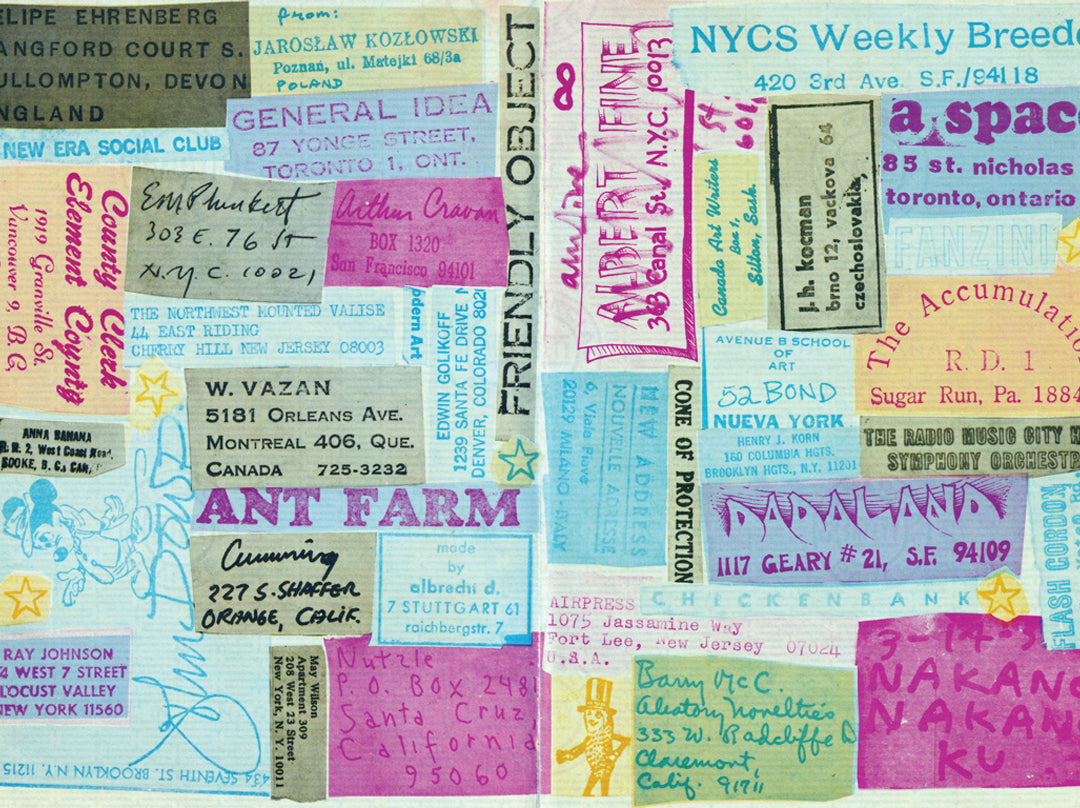 ELIPE EHRENBERG
ANGFORD COURT S.
ULLOMPTON, DEVON
NGLAND
from:
JAROSŁAW KOZŁOWSKI
Poznań, ul. Matejki 68/3a
POLAND
NEW ERA SOCIAL CLUB
GENERAL IDEA
87 YONGE STREET,
TORONTO 1, ONT.
FRIENDLY OBJECT
County Clerk
Element County
1919 Granville St.
Vancouver 9, B.C.
EM Plunkett
303 E. 76 St
N.Y.C. 10021
Arthur Cravan
BOX 1320
San Francisco 94101
THE NORTHWEST MOUNTED VALISE
44 EAST RIDING
CHERRY HILL NEW JERSEY 08003
odern Art
EDWIN GOLIKOFF
1239 SANTA FE DRIVE
DENVER, COLORADO 802
W. VAZAN
5181 ORLEANS AVE.
MONTREAL 406, QUE.
CANADA 725-3232
ANNA BANANA
R.R. 2, West Coast Road,
SOOKE, B.C. CAN.
ANT FARM
Cumming
227 S. SHAFFER
ORANGE, CALIF.
made
by
albrecht d.
7 STUTTGART 61
reichbergstr. 7
RAY JOHNSON
4 WEST 7 STREET
LOCUST VALLEY
NEW YORK 11560
434 SEVENTH ST. BROOKLYN N.Y. 11215
May Wilson
Apartment 309
208 West 23 Street
New York, N.Y. 10011
Nutzle
P.O. BOX 2481
Santa Cruz,
California
95060
ALBERT FINE
363 Canal St. N.Y.C. 10013
NYCS Weekly Breede
420 3rd Ave. S.F./94118
Canada Art Writers
Box 1,
Elton, Sask.
j.h. kocman
brno 12, vackova 64
czechoslovakia,
a space
85 st. nicholas
toronto, ontario
FANZINI
AVENUE B SCHOOL
OF
ART
52 BOND
NUEVA YORK
HENRY J. KORN
160 COLUMBIA HGTS.
BROOKLYN HGTS., N.Y. 11201
The Accumulatio
R.D. 1
Sugar Run, Pa. 1884
NEW ADDRESS
NOUVELLE ADRESSE
20129 MILANO-ITALY
CONE OF PROTECTION
THE RADIO MUSIC CITY H
SYMPHONY ORCHESTR
DADALAND
1117 GEARY #21, S.F. 94109
FLASH GORDON
CHECKENBANK
AIRPRESS
1075 Jassamine Way
Fort Lee, New Jersey 07024
U.S.A.
Barry McC.
Aleatory Novelties
333 W. Radcliffe D
Claremont,
Calif. 91711
NAKANO
NAKAN
KU